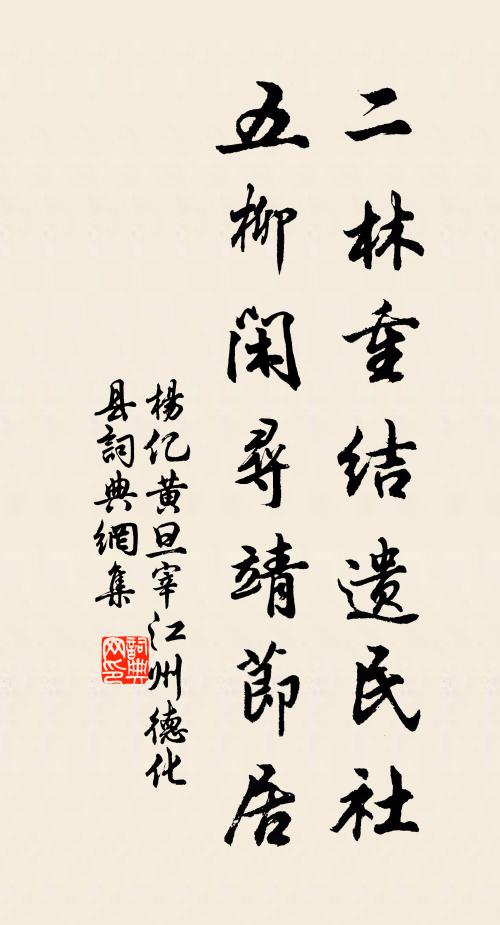 二林重结遗民社
五柳闲寻靖節居
楊亿黄旦宰江州德化
县詞典網集
詞典网印